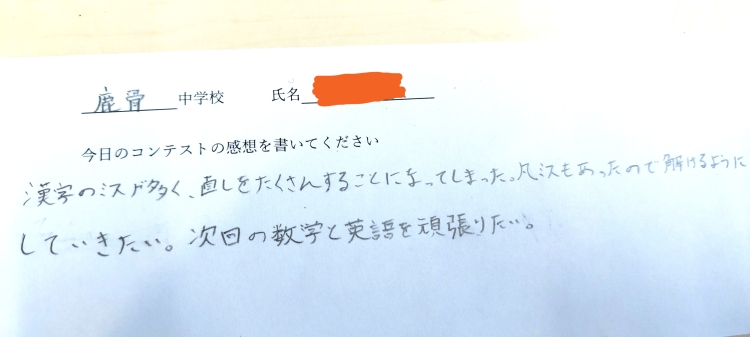 鹿骨 中学校 氏名
今日のコンテストの感想を書いてください
漢字のミスが多く、直しをたくさんすることになってしまった。凡ミスもあったので解けるように
していきたい。次回の数学と英語を頑張りたい。